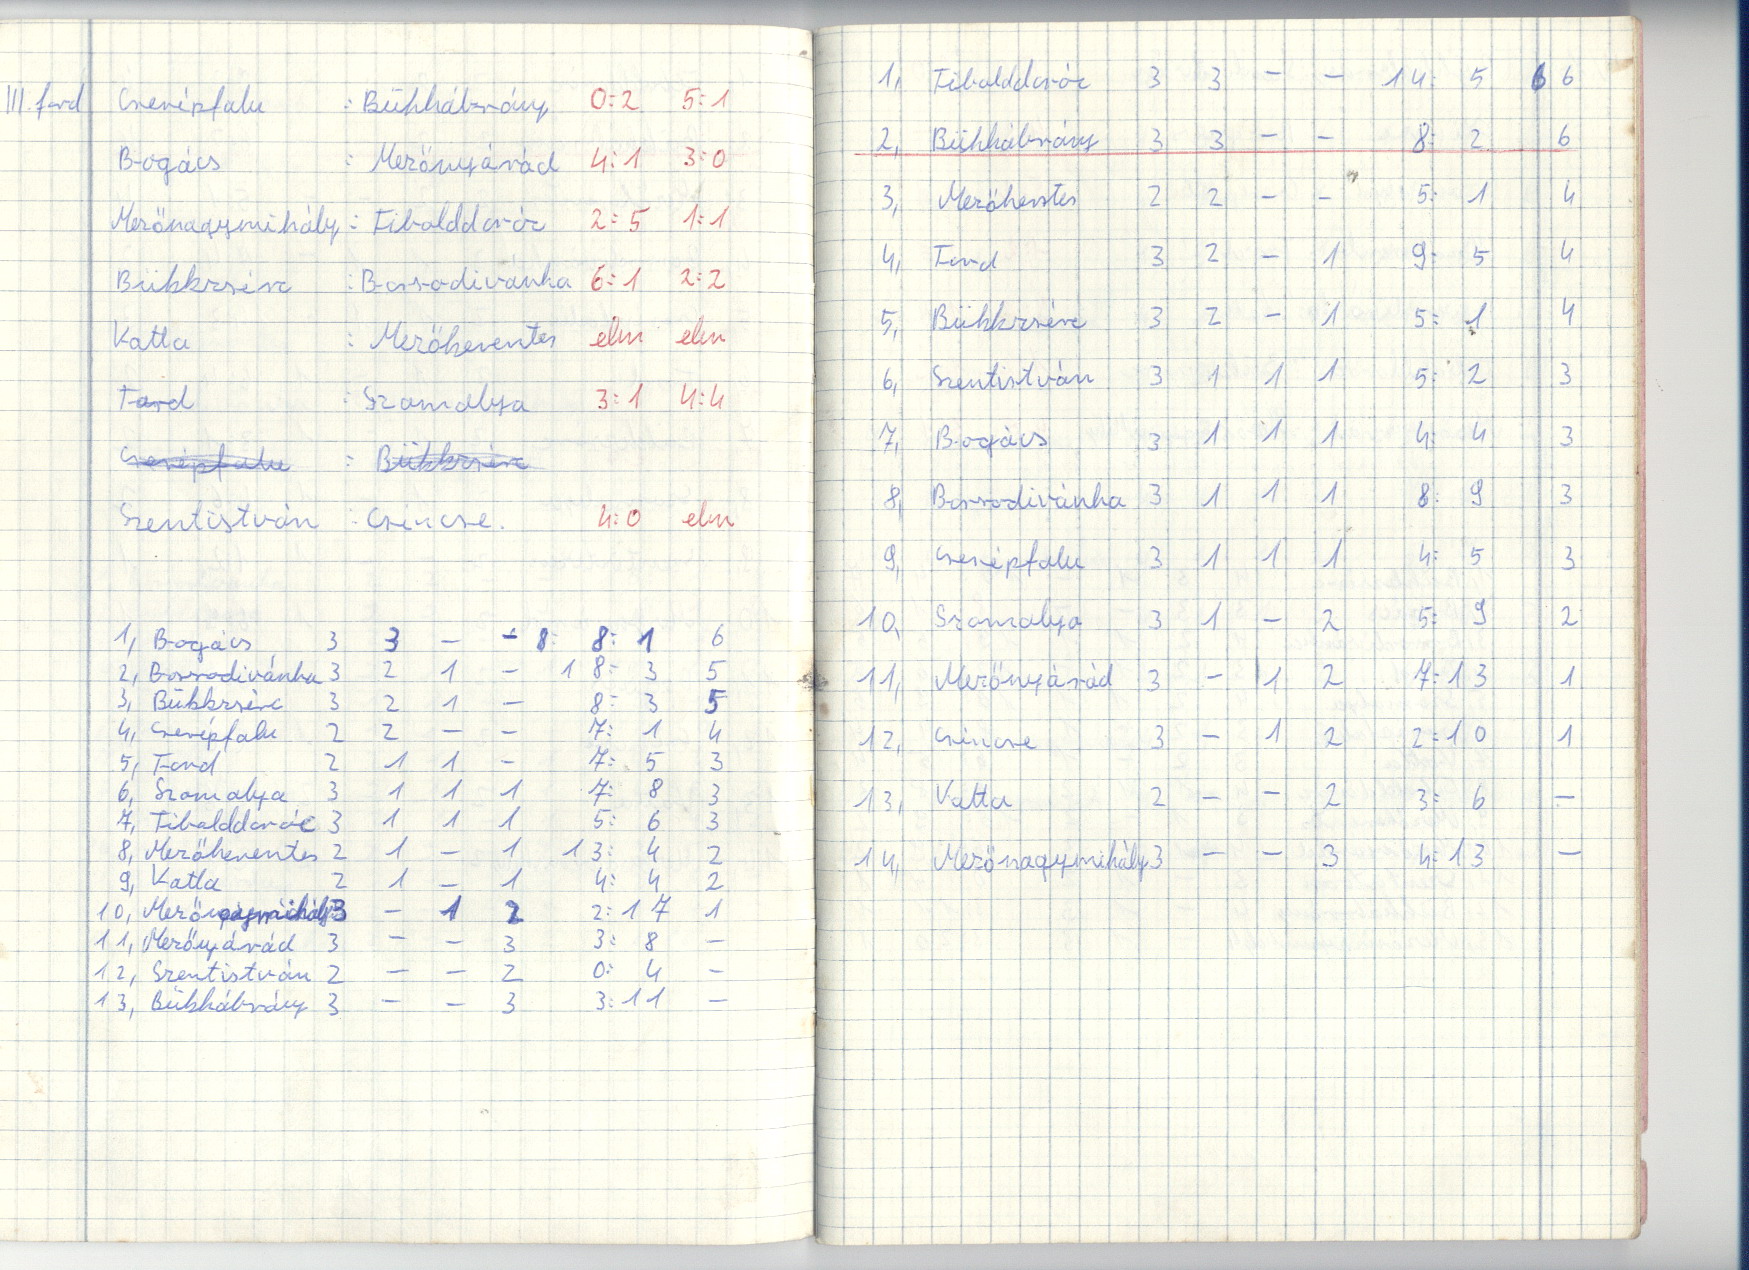 III. ford Cserépfalu : Bükkábrány 0:2 5:1
Bogács : Mezőnyárád 4:1 3:0
Mezőnagymihály : Tibolddaróc 2:5 1:1
Bükkzsérc : Borsodivánka 6:1 2:2
Vatta : Mezőkeresztes elm elm
Tard : Szomolya 3:1 4:4
Cserépfalu : Bükkzsérc
Szentistván : Csincse. 4:0 elm
1, Bogács 3 3 – – 8: 8: 1 6
2, Borsodivánka 3 2 1 – 1 8: 3 5
3, Bükkzsérc 3 2 1 – 8: 3 5
4, Cserépfalu 2 2 – – 7: 1 4
5, Tard 2 1 1 – 7: 5 3
6, Szomolya 3 1 1 1 7: 8 3
7, Tibolddaróc 3 1 1 1 5: 6 3
8, Mezőkeresztes 2 1 – 1 13: 4 2
9, Vatta 2 1 – 1 4: 4 2
10, Mezőnagymihály 3 – 1 2 2:17 1
11, Mezőnyárád 3 – – 3 3: 8 –
12, Szentistván 2 – – 2 0: 4 –
13, Bükkábrány 3 – – 3 3:11 –
1, Tibolddaróc 3 3 – – 14: 5 6 6
2, Bükkábrány 3 3 – – 8: 2 6
3, Mezőkeresztes 2 2 – – 5: 1 4
4, Tard 3 2 – 1 9: 5 4
5, Bükkzsérc 3 2 – 1 5: 1 4
6, Szentistván 3 1 1 1 5: 2 3
7, Bogács 3 1 1 1 4: 4 3
8, Borsodivánka 3 1 1 1 8: 9 3
9, Cserépfalu 3 1 1 1 4: 5 3
10, Szomolya 3 1 – 2 5: 9 2
11, Mezőnyárád 3 – 1 2 7:13 1
12, Csincse 3 – 1 2 2:10 1
13, Vatta 2 – – 2 3: 6 –
14, Mezőnagymihály 3 – – 3 4:13 –